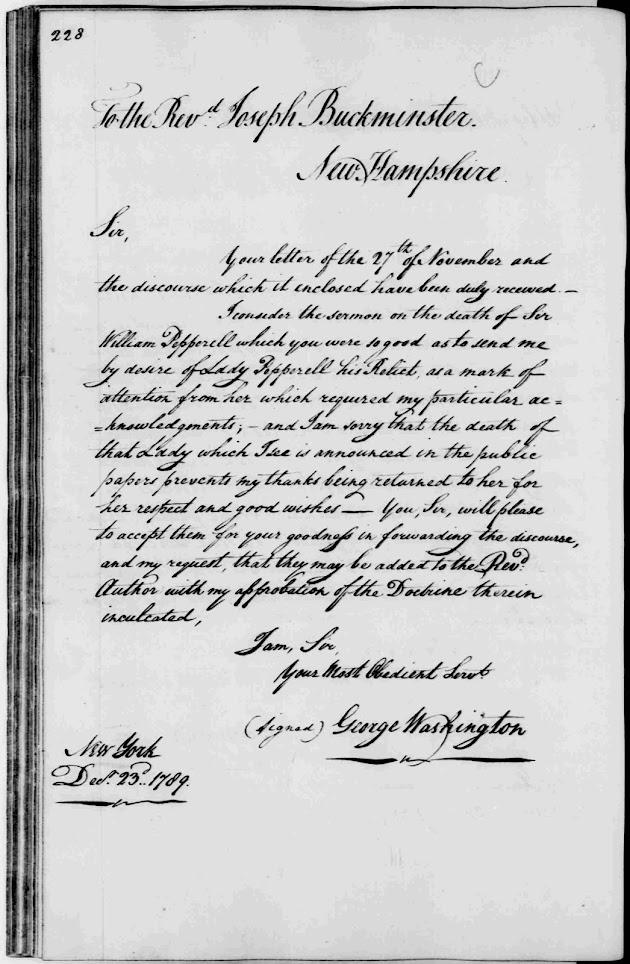 228
To the Revd. Joseph Buckminster.
New Hampshire.
Sir,
Your letter of the 27th of November and
the discourse which it enclosed have been duly received. —
I consider the sermon on the death of Sir
William Pepperell which you were so good as to send me
by desire of Lady Pepperell his Relict, as a mark of
attention from her which required my particular ac=
=knowledgments; — and I am sorry that the death of
that Lady which I see is announced in the public
papers prevents my thanks being returned to her for
her respect and good wishes — You, Sir, will please
to accept them for your goodness in forwarding the discourse,
and my request, that they may be added to the Revd.
Author with my approbation of the Doctrine therein
inculcated,
I am, Sir,
Your Most Obedient Servt.
(signed) George Washington
New York
Decr. 23d. 1789.